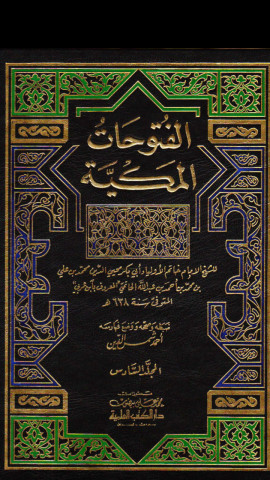 الفتوحات
المكية
للشيخ الإمام خاتم الأولياء أبي بكر محيي الدين محمد بن علي
بن محمد بن أحمد بن عبد الله الحاتمي المعروف بابن عربي
المتوفى سنة ٦٣٨ هـ
ضبطه وصححه ووضع فهارسه
أحمد شمس الدين
المجلد السادس
دار الكتب العلمية